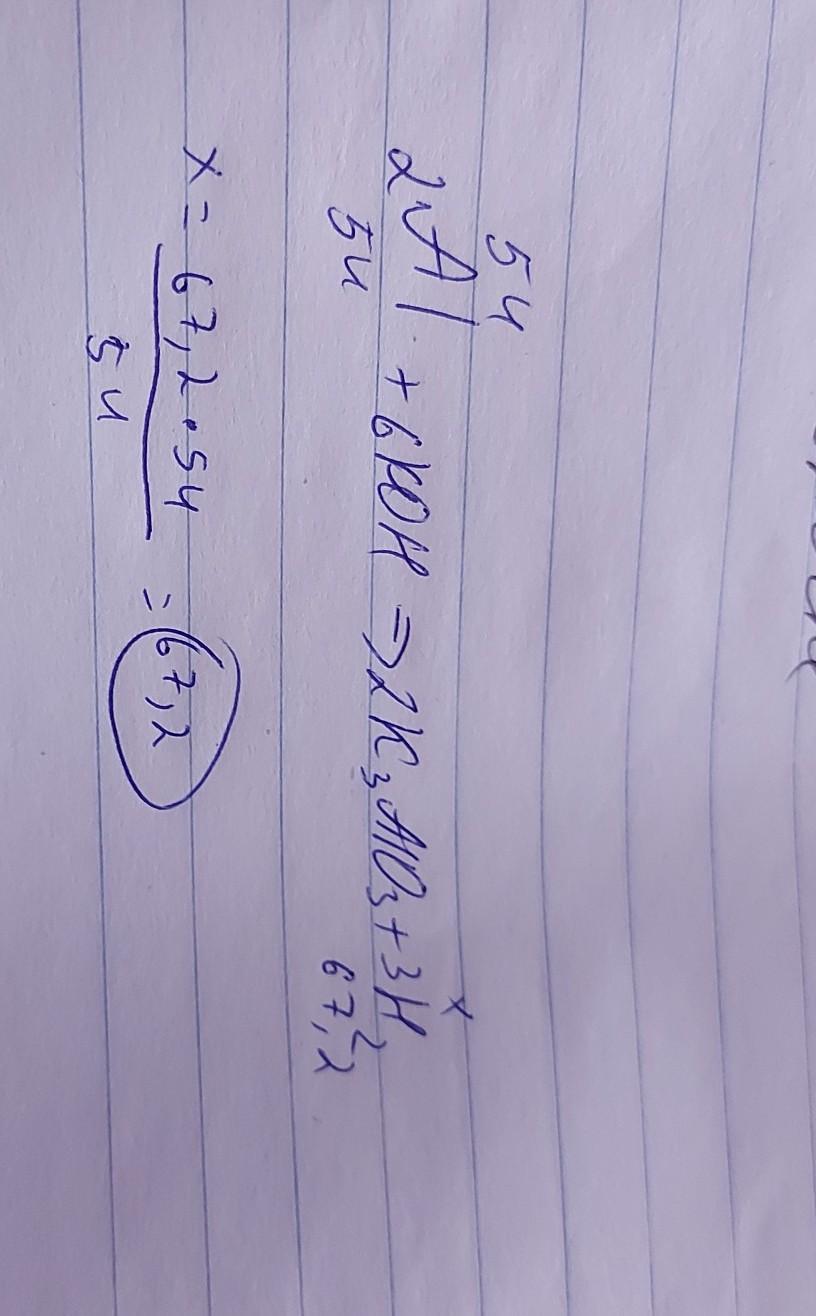 54 x
2Al + 6KOH ⇒ 2K₃AlO₃ + 3H₂
54 67,2
x = 67,2 • 54 / 54 = 67,2